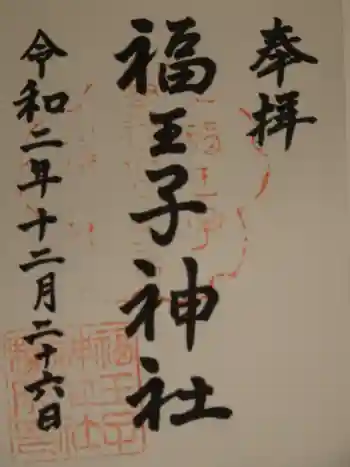 奉拝
福王子神社
令和二年十二月二十六日
福王子